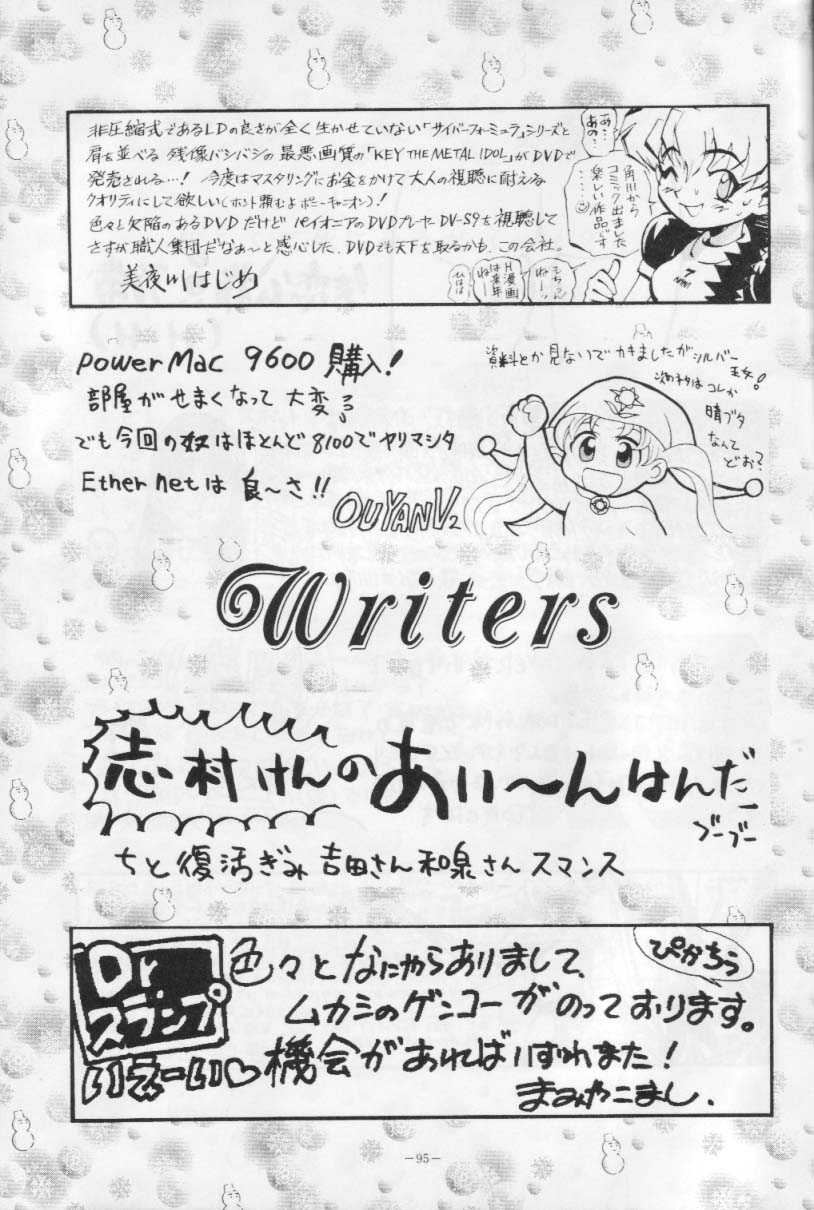 非圧縮式であるLDの良さが全く生かせていない「サイバーフォーミュラ」シリーズと
肩を並べる 残像バシバシの 最悪画質の「KEY THE METAL IDOL」がDVDで
発売される…! 今度はマスタリングにお金をかけて大人の視聴に耐える
クオリティにして欲しい(ホント頼むよポニーキャニオン)!
色々と欠陥のあるDVDだけど パイオニアのDVDプレーヤ DV-S9を視聴して
さすが職人集団だなぁ〜と感心した、DVDでも天下を取るかも、この会社。
美夜川はじめ
あ…
あの…
角川から
コミック出ました
楽しい作品です
・・・・
もちろん
ねーッ
H漫画
は来年
ねー
ひはは
Power Mac 9600 購入!
部屋がせまくなって 大変
でも今回の奴はほとんど8100でヤリマシタ
Ether netは 良〜さ!!
OUYANV2
資料とか見ないでカキましたがシルバー
王女!
次のネタは コレか
晴ブタ
なんて
どお?
Writers
志村けんのあぃ〜んはんだー
ブーブー
ちと復活ぎみ 吉田さん和泉さん スマンス
Dr
スランプ
いえーい♡
色々となにやらありまして、
ムカシのゲンコーがのっております。
機会があればいずれまた!
まみやこまし.
ぴかちう
—95—